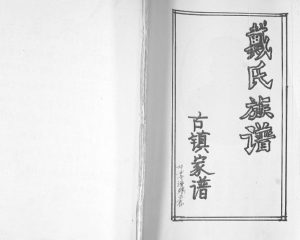 戴氏族谱
古镇家谱